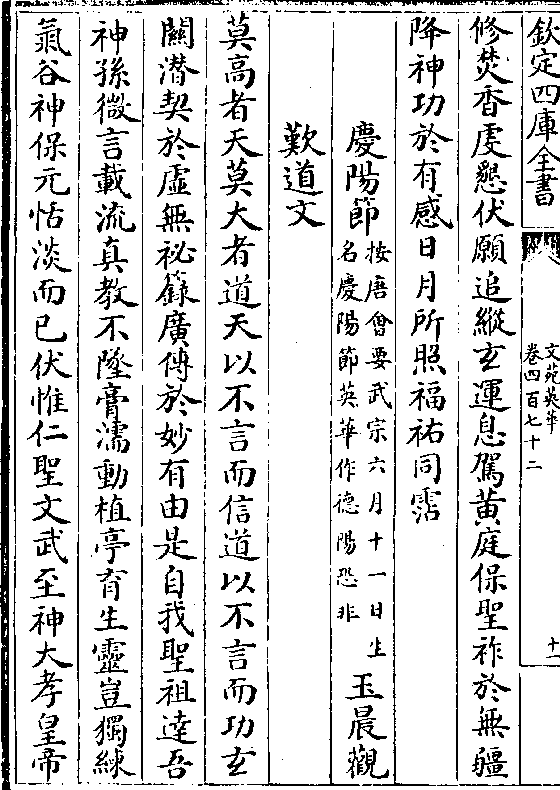 欽定四庫全書
文苑英華
卷四百七十二
十一
修焚香虔懇伏願追縱玄運息駕黃庭保聖祚於無疆
降神功於有感日月所照福祐同霑
慶陽節按唐會要武宗六月十一日生名慶陽節英華作德陽恐非玉晨觀
歎道文
莫高者天莫大者道天以不言而信道以不言而功玄
關潛契於虛無祕籙廣傳於妙有由是自我聖祖逹吾
神孫微言載流真教不墜膏濡動植亭育生靈豈獨練
氣谷神保元恬淡而已伏惟仁聖文武至神大孝皇帝